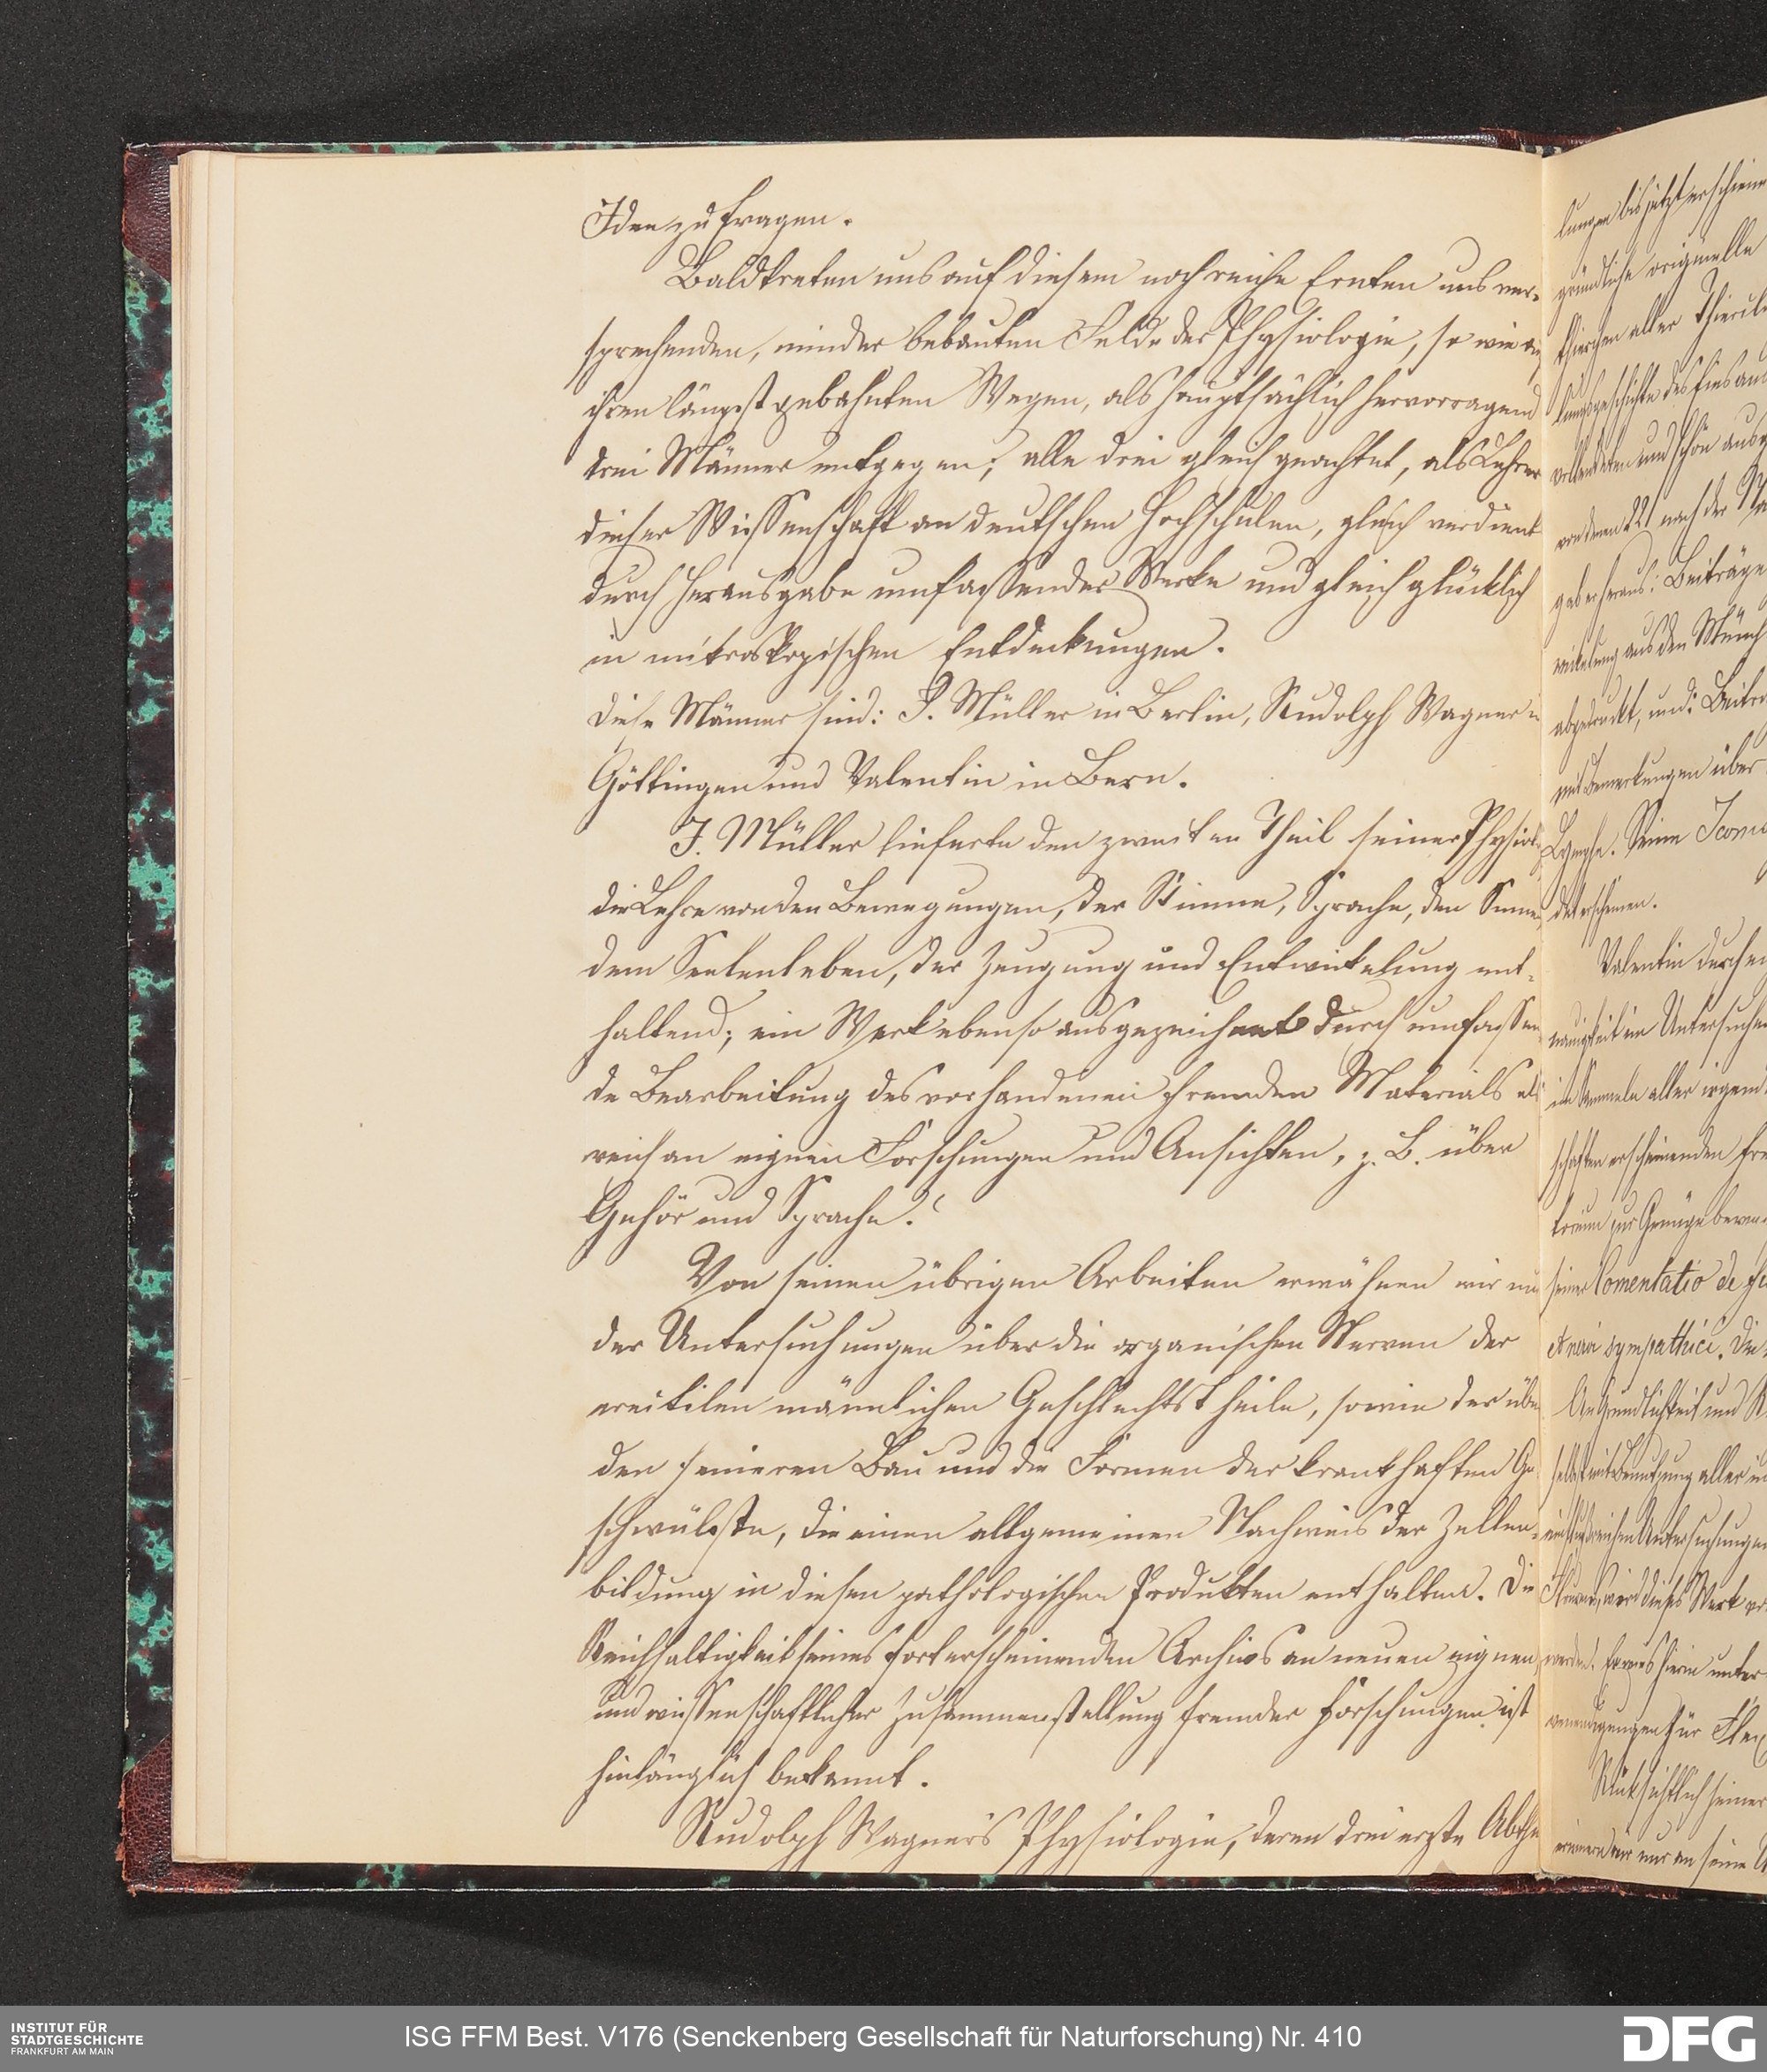 Iden zu fragen.
Bald treten uns auf diesem noch reiche Ernten uns ver-
sprechenden, minder bebauten Felde der Physiologie, so wie auf
ihren längst gebahnten Wegen, als hauptsächlich hervorragend
drei Männer entgegen; alle drei gleich geachtet, als Lehrer
dieser Wissenschaft an deutschen Hochschulen, gleich verdient
durch Herausgabe umfassender Werke und gleich glücklich
in mikroskopischen Entdeckungen.
Diese Männer sind: J. Müller in Berlin, Rudolph Wagner in
Göttingen und Valentin in Bern.
J. Müller lieferte den zweiten Theil seiner Physiol.
die Lehre von den Bewegungen, der Stimme, Sprache, den Sinnen,
dem Seelenleben, der Zeugung und Entwickelung ent-
haltend; ein Werk ebenso ausgezeichnet durch umfassen-
de Bearbeitung des vorhandenen fremden Materials als
reich an eignen Forschungen und Ansichten, z. B. über
Gehör und Sprache.
Von seinen übrigen Arbeiten erwähnen wir nur
der Untersuchungen über die organischen Nerven der
erectilen männlichen Geschlechtstheile, sowie der über
den feineren Bau und die Formen der krankhaften Ge-
schwülste, die einen allgemeinen Nachweis der Zellen-
bildung in diesen pathologischen Produkten enthalten. Die
Reichhaltigkeit seines forterscheinenden Archivs an neuen eignen
und wissenschaftlicher Zusammenstellung fremder Forschungen ist
hinlänglich bekannt.
Rudolph Wagner's Physiologie, deren drei erste Abthe
lungen bis jetzt erschienen
gründliche originelle
Thierchen aller Thierkl
lungsgeschichte des Eies aus
vollendeten und schön ausg
von denen 221 nach der Na
gab er heraus: Beiträge
wickelung aus den Münch
abgedruckt, und: Beiträ
mit Bemerkungen über
Lymphe. Seine Icones
det erschienen.
Valentin durch ei
nauigkeit im Untersuchen
im Sammeln aller irgend
schaften erscheinenden fre
seiner Comentatio de fu
et nervi sympathici. Die
An Gründlichkeit und R
selbst mit Benutzung aller in
einflußreichen Untersuchungen
wird dieses Werk vo
werden. hierin unter
für
Rücksichtlich seiner
erinnern wir nur an seine U
INSTITUT FÜR
STADTGESCHICHTE
FRANKFURT AM MAIN
ISG FFM Best. V176 (Senckenberg Gesellschaft für Naturforschung) Nr. 410
DFG